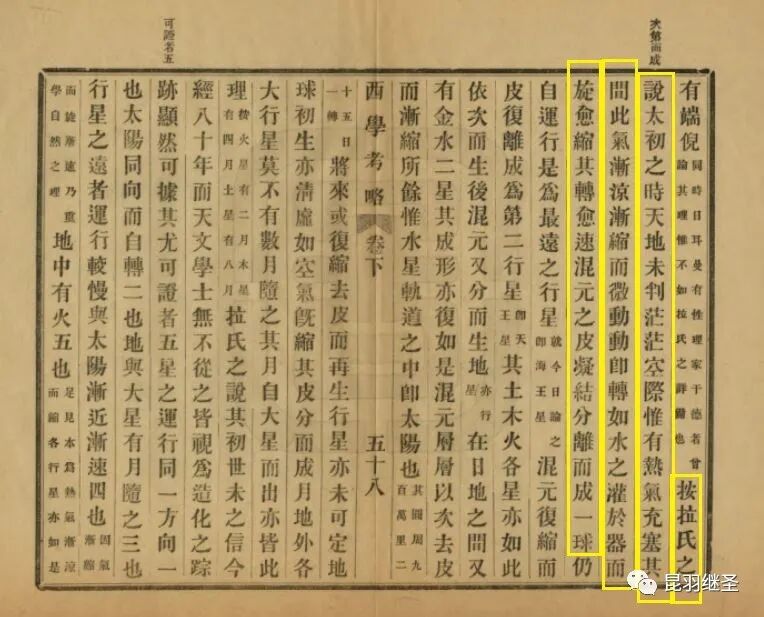 次第而成
有端倪同時日耳曼有性理家干德者曾論其理惟不如拉氏之詳備也按拉氏之
說太初之時天地未判茫茫空際惟有熱氣充塞其
間此氣漸涼漸縮而微動動卽轉如水之灌於器而
旋愈縮其轉愈速混元之皮凝結分離而成一球仍
自運行是爲最遠之行星就今日論之卽海王星混元復縮而
皮復離成爲第二行星卽天王星其土木火各星亦如此
依次而生後混元又分而生地亦行星在日地之間又
有金水二星其成形亦復如是混元層層以次去皮
而漸縮所餘惟水星軌道之中卽太陽也其圓周九百萬里二
西學考略 卷下 五十八
可證者五
十五日一轉將來或復縮去皮而再生行星亦未可定地
球初生亦清虛如空氣旣縮其皮分而成月地外各
大行星莫不有數月隨之其月自大星而出亦皆此
理按火星有二月木星有四月土星有八月拉氏之說其初世未之信今
經八十年而天文學士無不從之皆視爲造化之踪
跡顯然可據其尤可證者五星之運行同一方向一
也太陽同向而自轉二也地與大星有月隨之三也
行星之遠者運行較慢與太陽漸近漸速四也因氣漸縮
而旋漸速乃重學自然之理地中有火五也足見本爲熱氣漸涼而縮各行星亦如是
昆羽继圣